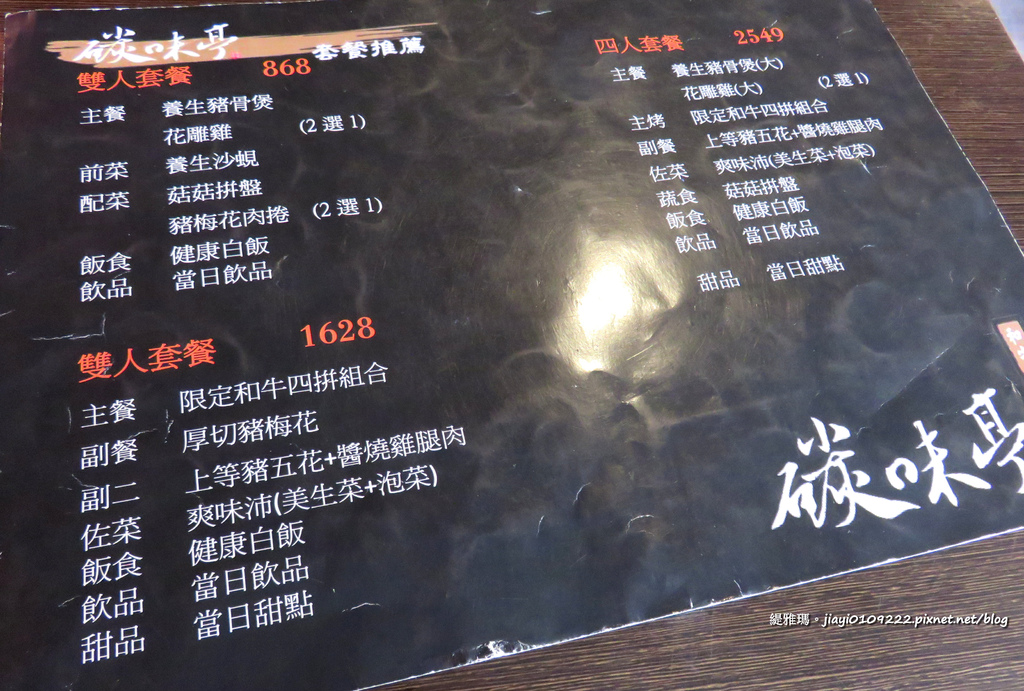 碳味亭 套餐推薦
雙人套餐 868
主餐 養生豬骨煲
花雕雞 (2 選 1)
前菜 養生沙蜆
配菜 菇菇拼盤
豬梅花肉捲 (2 選 1)
飯食 健康白飯
飲品 當日飲品
雙人套餐 1628
主餐 限定和牛四拼組合
副餐 厚切豬梅花
副二 上等豬五花+醬燒雞腿肉
佐菜 爽味沛(美生菜+泡菜)
飯食 健康白飯
飲品 當日飲品
甜品 當日甜點
四人套餐 2549
主餐 養生豬骨煲(大)
花雕雞(大) (2 選 1)
主烤 限定和牛四拼組合
副餐 上等豬五花+醬燒雞腿肉
佐菜 爽味沛(美生菜+泡菜)
蔬食 菇菇拼盤
飯食 健康白飯
飲品 當日飲品
甜品 當日甜點
碳味亭
緹雅瑪。jiayi0109222.pixnet.net/blog